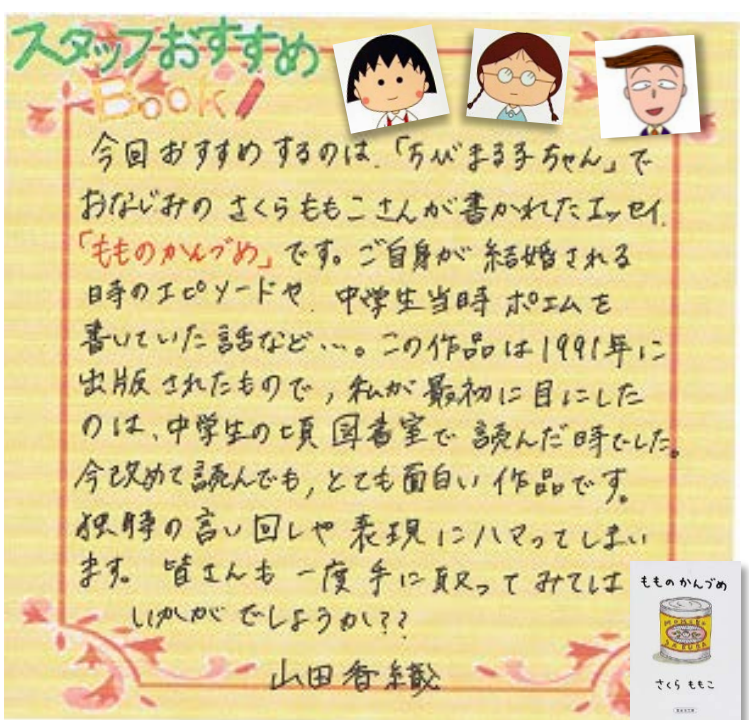 スタッフおすすめ
Book!
今回おすすめするのは、「ちびまる子ちゃん」で
おなじみの さくらももこさんが書かれたエッセイ、
「もものかんづめ」です。ご自身が結婚される
時のエピソードや、中学生当時ポエムを
書いていた話など…。この作品は1991年に
出版されたもので、私が最初に目にした
のは、中学生の頃図書室で読んだ時でした。
今改めて読んでも、とても面白い作品です。
独特の言い回しや表現にハマってしまい
ます。皆さんも一度手に取ってみては
いかがでしょうか??
山田香織
もものかんづめ
MOMOKO
SAKURA
さくらももこ